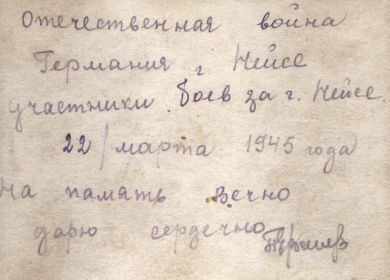 Отечественная война
Германия г Нейсе
участники боев за г. Нейсе.
22/марта 1945 года
На память вечно
дарю сердечно